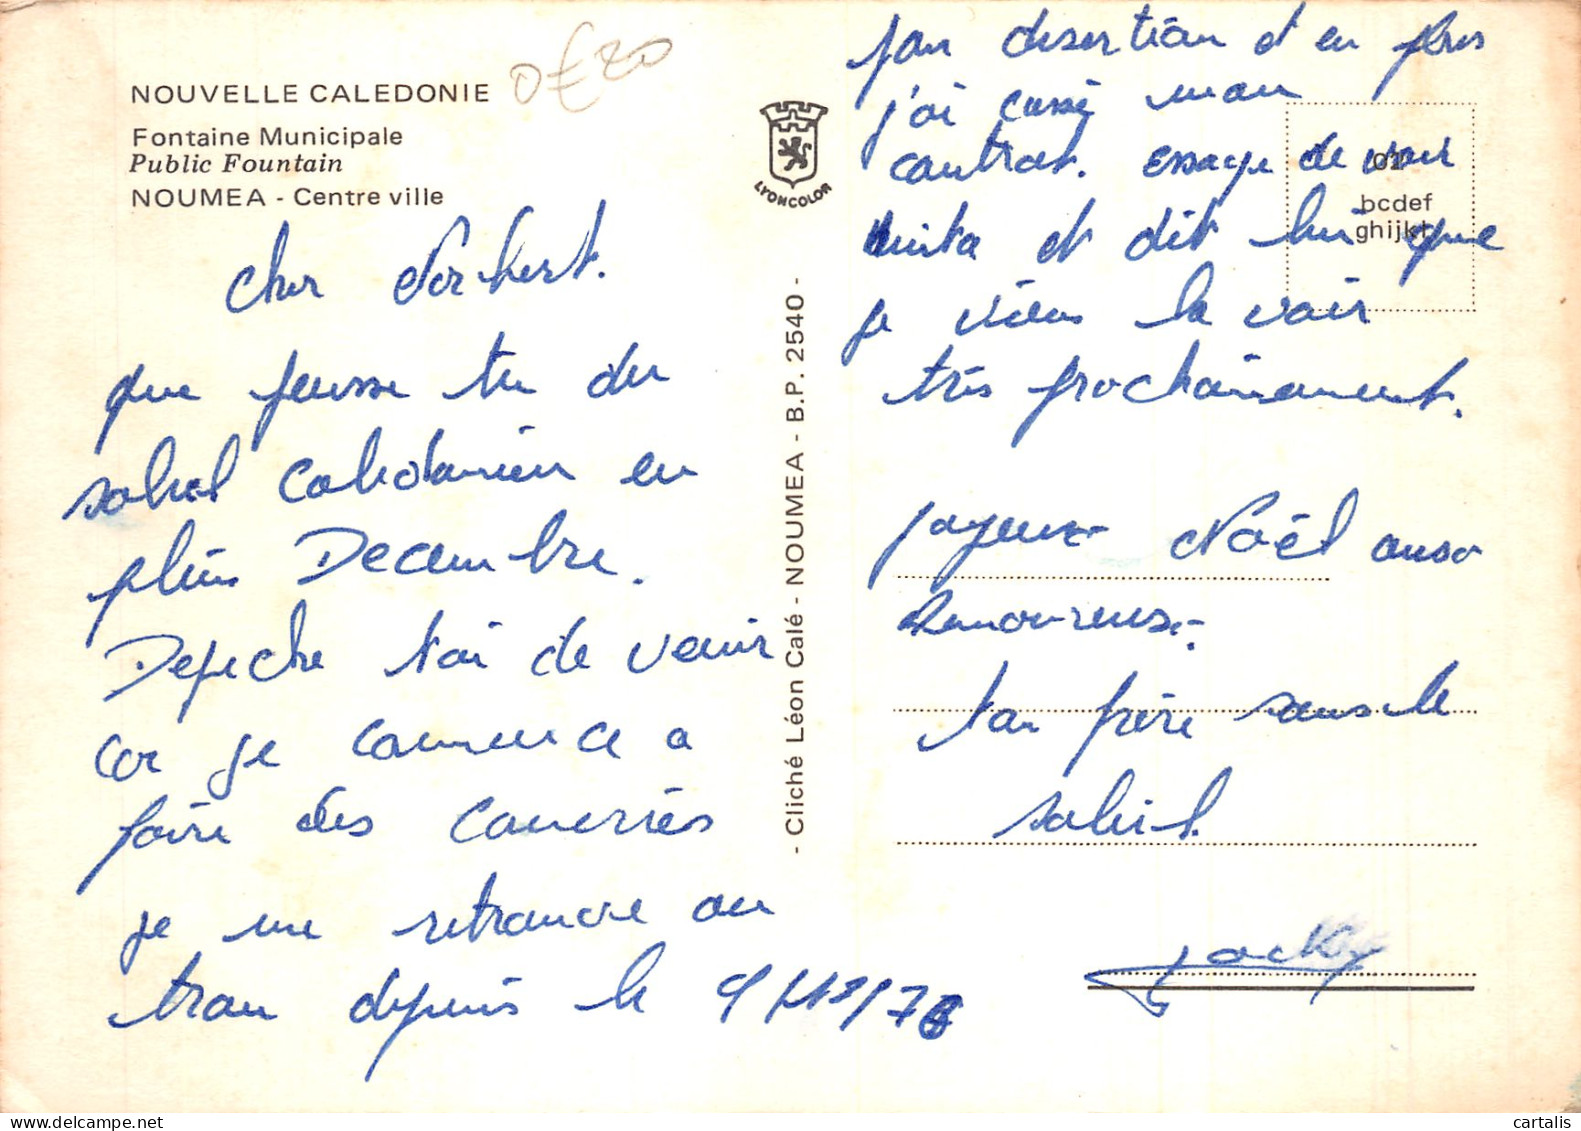 NOUVELLE CALEDONIE
0€20
Fontaine Municipale
Public Fountain
NOUMEA - Centre ville
LYONCOLOR
- Cliché Léon Calé - NOUMEA - B.P. 2540 -
Cher Norbert.
que pensse tu du
soleil caledonien en
plein Decembre.
Depeche toi de venir
car je commence a
faire des conerries
je me retrouve au
trou depuis le 9/12/76
pour desertion et en plus
j'ai cassé mon
contrat. essaye de voir
et dit lui que
je viens la voir
très prochainement.
joyeux Noël
amoureuse.
ton frère sous le
soleil.
Jacky
bcdef
ghijkl